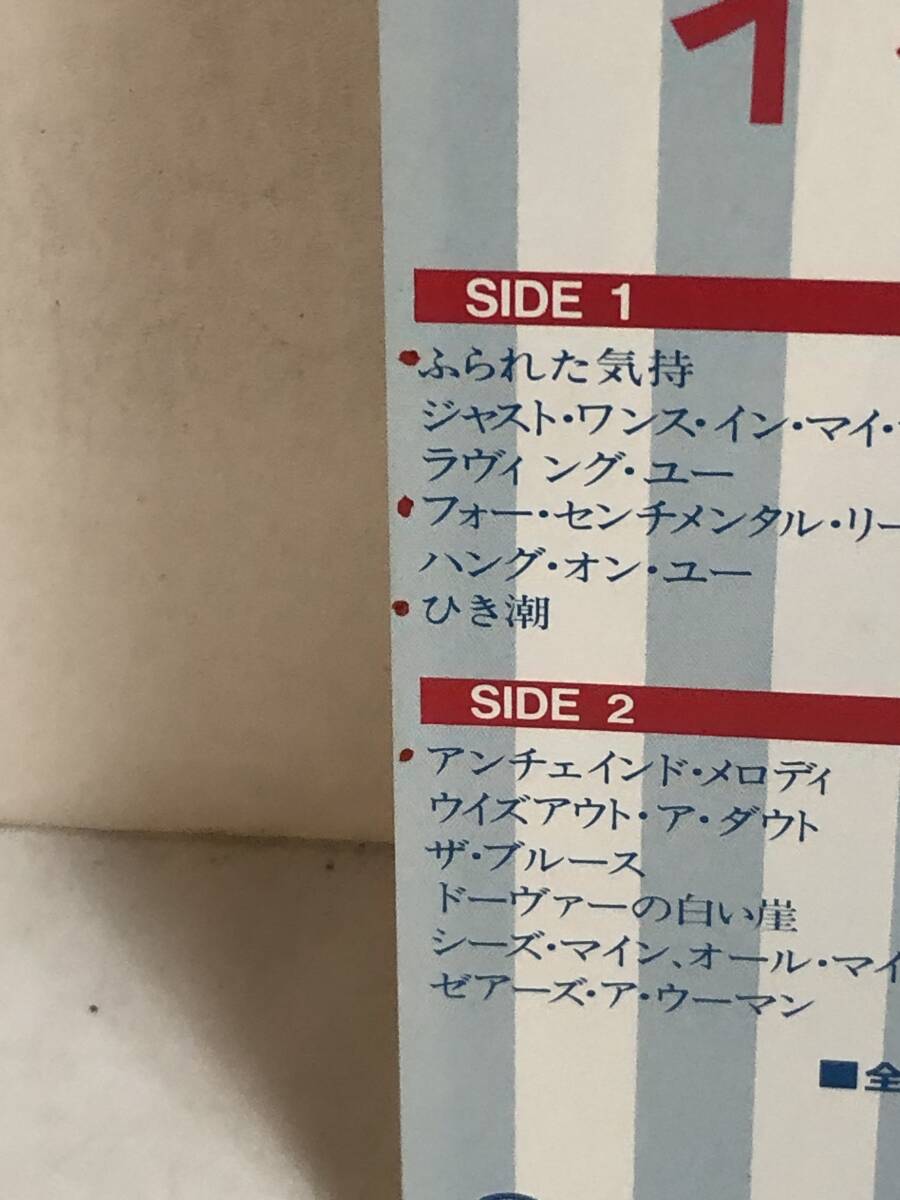 イ
SIDE 1
ふられた気持
ジャスト・ワンス・イン・マイ・
ラヴィング・ユー
フォー・センチメンタル・リー
ハング・オン・ユー
ひき潮
SIDE 2
アンチェインド・メロディ
ウイズアウト・ア・ダウト
ザ・ブルース
ドーヴァーの白い崖
シーズ・マイン、オール・マイ
ゼアーズ・ア・ウーマン
■全